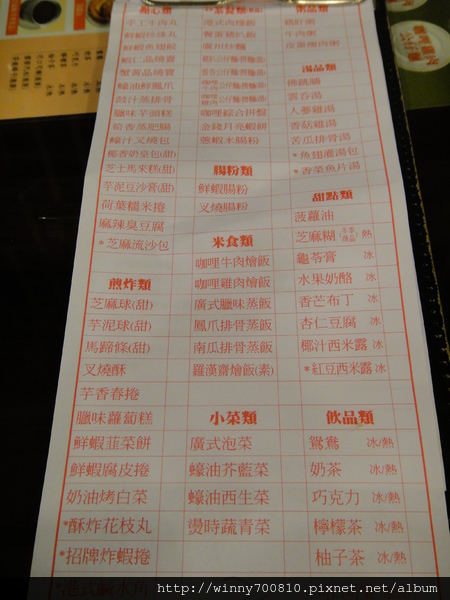 點心類
手工牛肉丸
鮮蝦珍珠丸
鮮蝦魚翅餃
蟹黃晶燒賣
蠔油鮮鳳爪
豉汁蒸排骨
臘味芋頭糕
筍香蒸肥腸
蠔汁叉燒包
椰香奶皇包(甜)
芝士馬來糕(甜)
芋泥豆沙膏(甜)
荷葉糯米捲
麻辣臭豆腐
*芝麻流沙包
煎炸類
芝麻球(甜)
芋泥球(甜)
馬蹄條(甜)
叉燒酥
芋香春捲
臘味蘿蔔糕
鮮蝦韭菜餅
鮮蝦腐皮捲
奶油烤白菜
*酥炸花枝丸
*招牌炸蝦捲
港式肉燥飯
廣州炒麵
咖哩綜合拼盤
金錢月亮蝦餅
蔥蝦米腸粉
腸粉類
鮮蝦腸粉
叉燒腸粉
米食類
咖哩牛肉燴飯
咖哩雞肉燴飯
廣式臘味蒸飯
鳳爪排骨蒸飯
南瓜排骨蒸飯
羅漢齋燴飯(素)
小菜類
廣式泡菜
蠔油芥藍菜
蠔油西生菜
燙時蔬青菜
粥品類
豬肝粥
牛肉粥
皮蛋瘦肉粥
湯品類
佛跳牆
雲吞湯
人參雞湯
香菇雞湯
苦瓜排骨湯
*魚翅灌湯包
*香菜魚片湯
甜點類
菠蘿油
*芝麻糊 冬季限品 熱
龜苓膏 冰
水果奶酪 冰
香芒布丁 冰
杏仁豆腐 冰
椰汁西米露 冰
*紅豆西米露 冰
飲品類
鴛鴦 冰/熱
奶茶 冰/熱
巧克力 冰/熱
檸檬茶 冰/熱
柚子茶 冰/熱
http://winny700810.pixnet.net/album